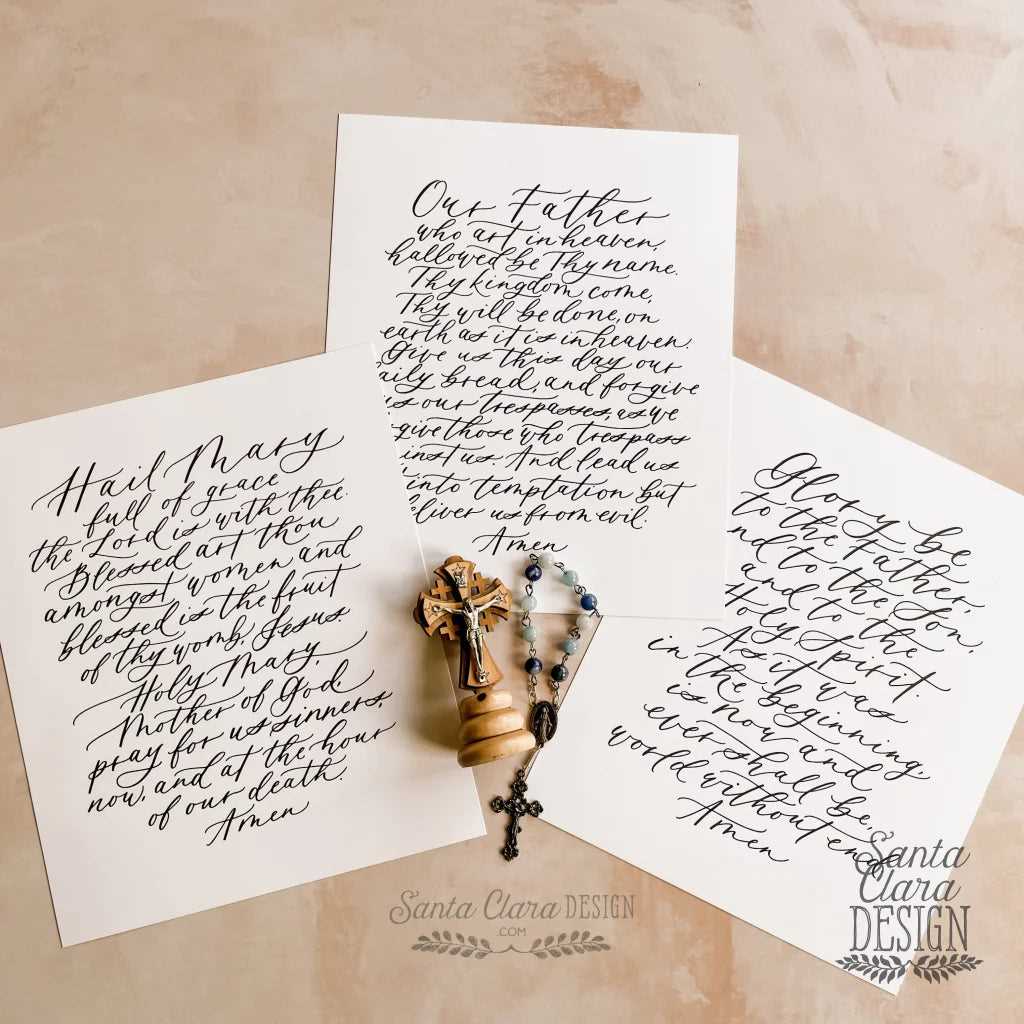 Our Father
who art in heaven,
hallowed be Thy name.
Thy kingdom come,
Thy will be done, on
earth as it is in heaven.
Give us this day our
aily bread, and forgive
us our trespasses, as we
give those who trespass
inst us. And lead us
into temptation but
eliver us from evil.
Amen
Hail Mary
full of grace
the Lord is with thee.
Blessed art thou
amongst women and
blessed is the fruit
of thy womb, Jesus.
Holy Mary,
Mother of God,
pray for us sinners,
now, and at the hour
of our death.
Amen
Glory be
to the Father,
nd to the Son,
and to the
Holy Spirit.
As it was
in the beginning,
is now and
ever shall be,
world without end
Amen
Santa Clara DESIGN
.COM
Santa
Clara
DESIGN